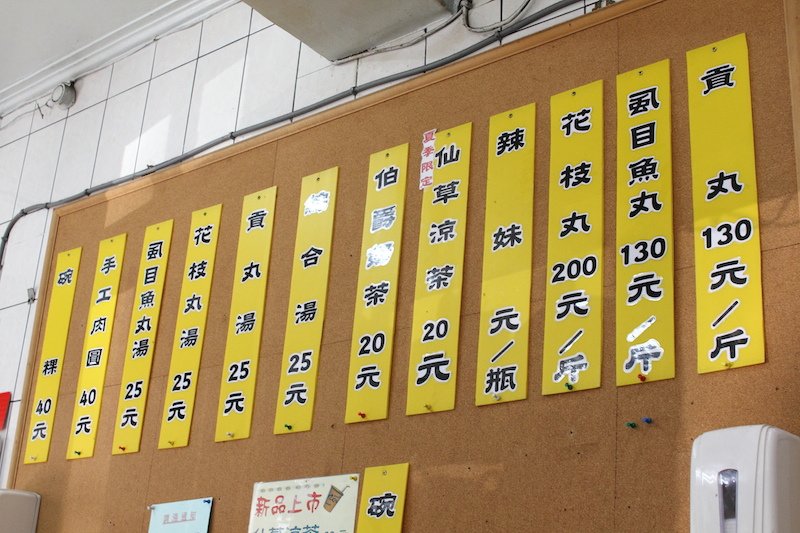 碗粿40元
手工肉圓40元
虱目魚丸湯25元
花枝丸湯25元
貢丸湯25元
合湯25元
伯爵茶20元
夏季限定
仙草凉茶20元
辣妹元/瓶
花枝丸200元/斤
虱目魚丸130元/斤
貢丸130元/斤
新品上市
碗